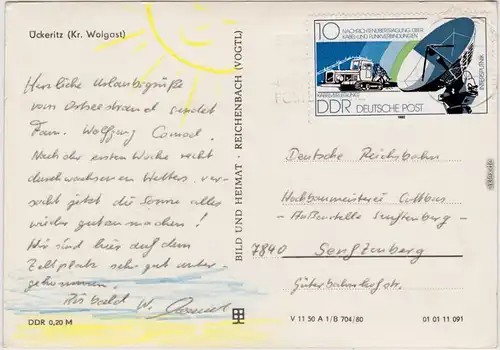 Ückeritz (Kr. Wolgast)
Herzliche Urlaubsgrüße
vom Ostseestrand sendet
Fam. Wolfgang
Nach der ersten Woche recht
durchwachsenen Wetters, ver-
sucht jetzt die Sonne alles
wieder gutzumachen!
Wir sind hier auf dem
Zeltplatz sehr gut unter-
gekommen.
Bis bald W.
DDR 0,20 M
BILD UND HEIMAT · REICHENBACH (VOGTL)
10
NACHRICHTENÜBERTRAGUNG ÜBER
KABEL-UND FUNKVERBINDUNGEN
KABELVERLEGUNG
DDR DEUTSCHE POST
INTERSPUTNIK
1980
Deutsche Reichsbahn
Hochbaumeisterei Cottbus
- Außenstelle Senftenberg -
7840 Senftenberg
Güterbahnhofstr.
V 11 50 A 1/B 704/80
01 01 11 091